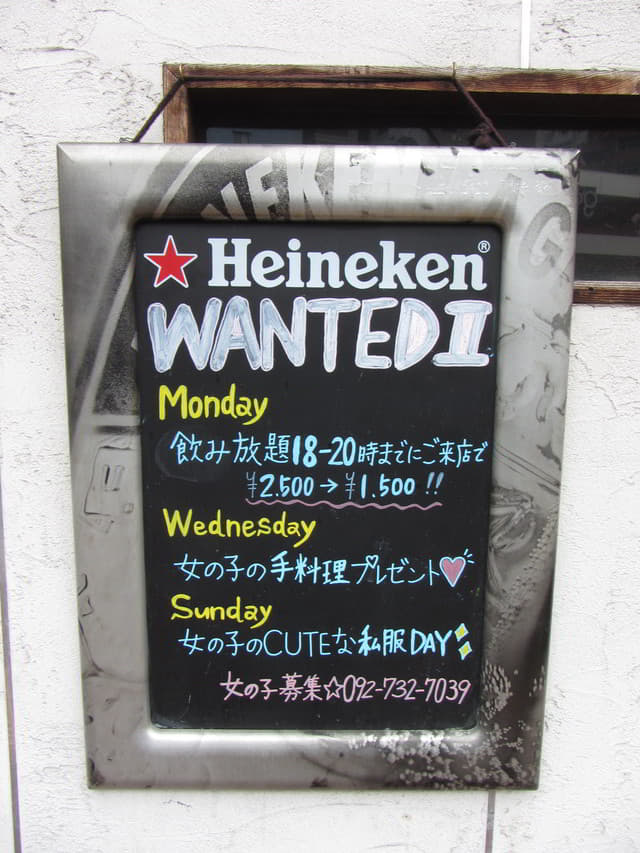 HEINEKEN
★ Heineken®
WANTED II
Monday
飲み放題18-20時までにご来店で
¥2.500→¥1.500!!
Wednesday
女の子の手料理プレゼント♡
Sunday
女の子のCUTEな私服DAY
女の子募集☆092-732-7039